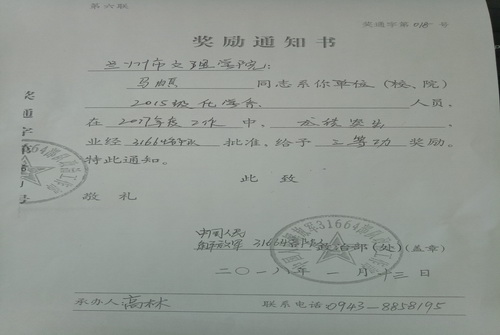 第六联
奖通字第018号
奖励通知书
兰州市文理学院：
马
同志系你单位（校、院）
2015级化学系
人员。
在2017年度工作中，成绩突出
业经31664部队批准，给予三等功奖励。
特此通知。
此致
敬礼
中国人民
解放军31664部队政治部（处）（盖章）
二〇一八年一月十三日
承办人高林
联系电话0943-8858195
31664